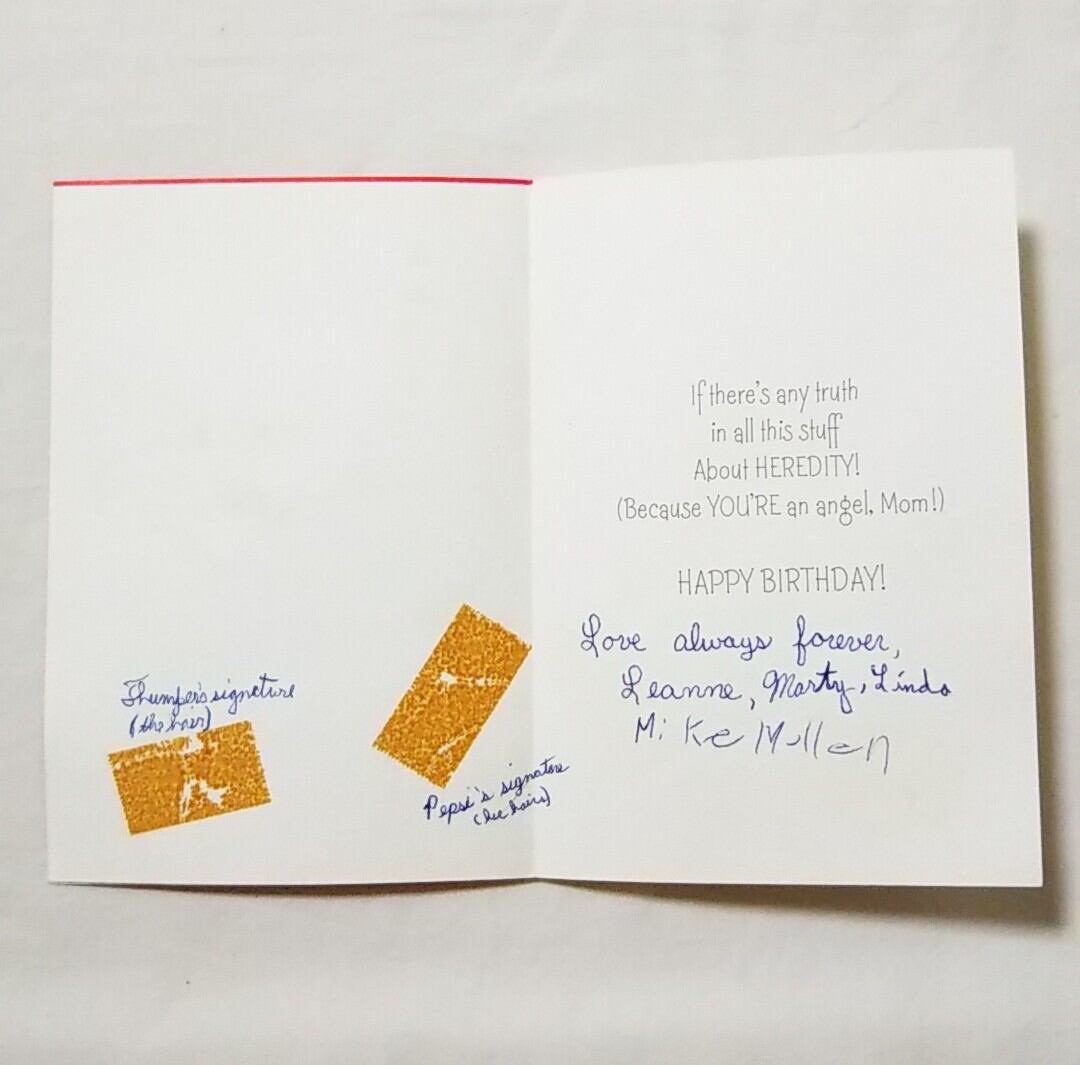 Thumper's signature
(the hair)
Pepsi's signature
(her hairs)
If there's any truth
in all this stuff
About HEREDITY!
(Because YOU'RE an angel, Mom!)
HAPPY BIRTHDAY!
Love always forever,
Leanne, Marty, Linda
Mike Mullen